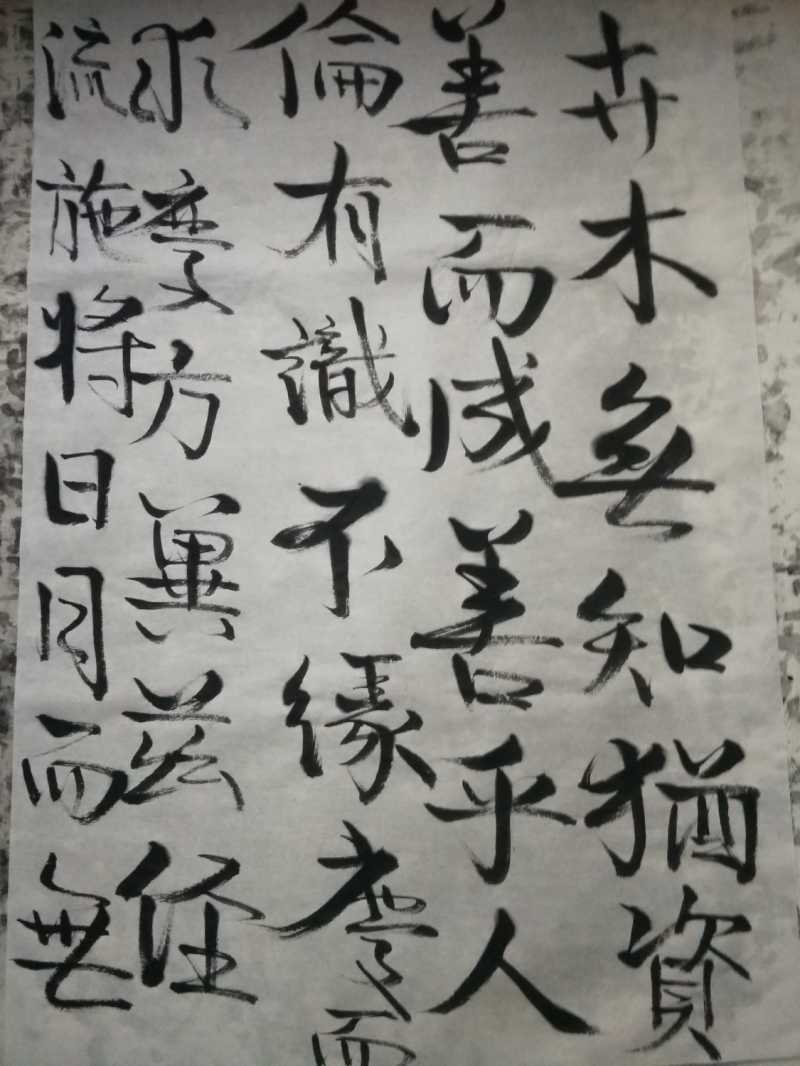 卉木無知猶資
善而成善乎人
倫有識不緣慶而
求慶方冀茲經
流施將日月而無